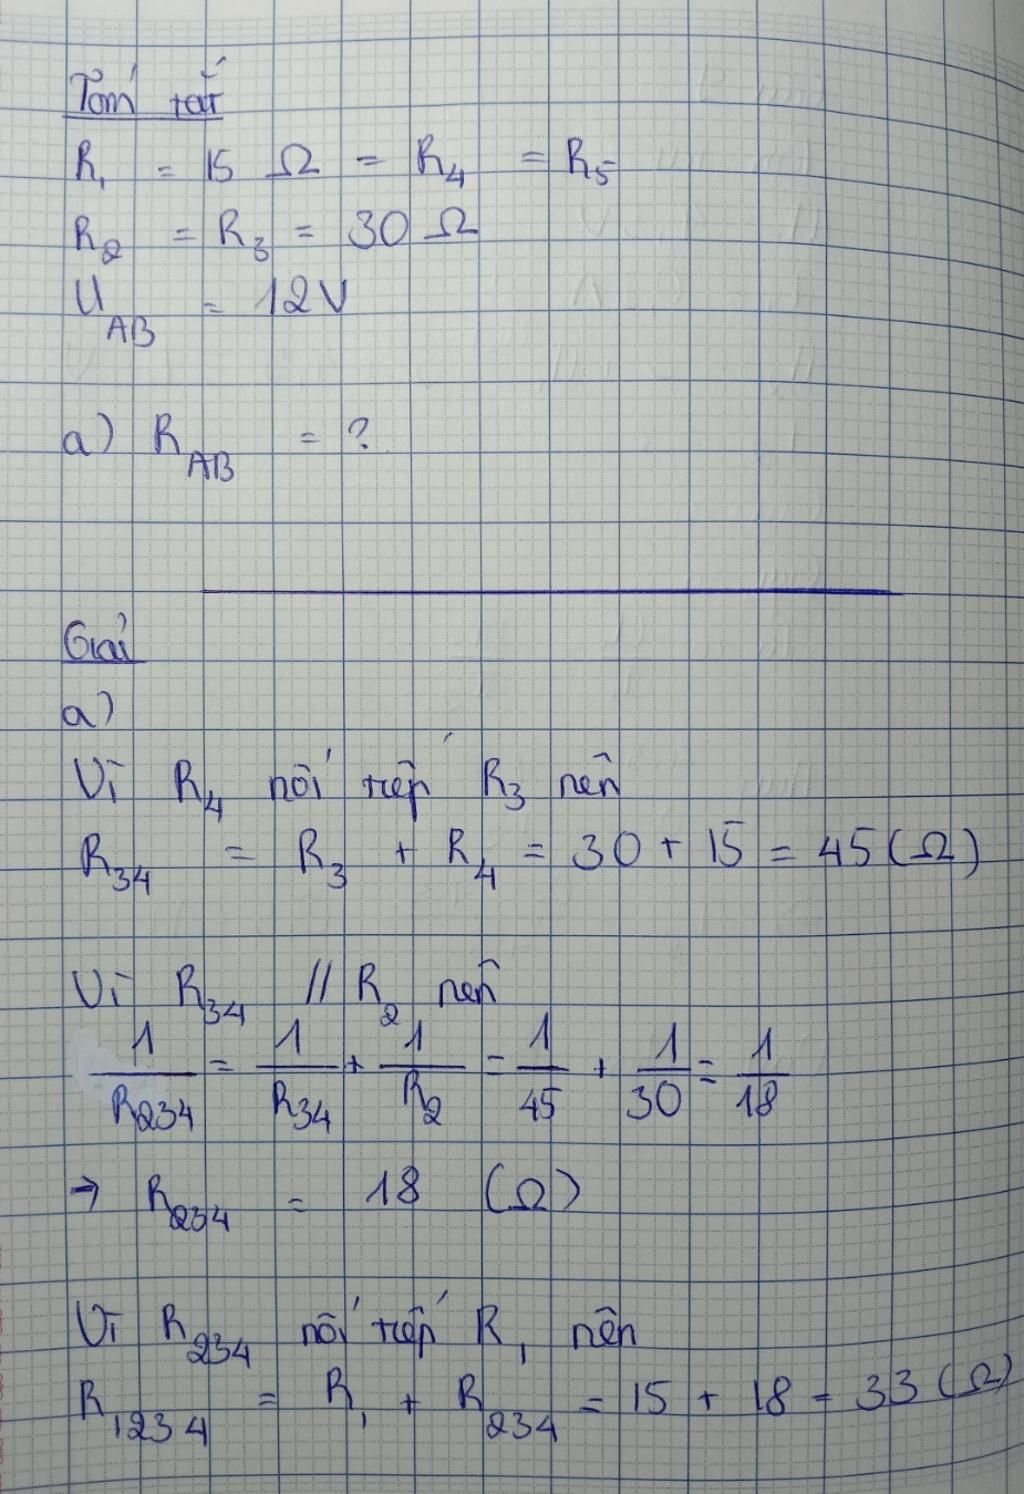 Tóm tắt
R₁ = 15 Ω = R₄ = R₅
R₂ = R₃ = 30 Ω
U_AB = 12V
a) R_AB = ?
Giải
a)
Vì R₄ nối tiếp R₃ nên
R₃₄ = R₃ + R₄ = 30 + 15 = 45 (Ω)
Vì R₃₄ // R₂ nên
1/R₂₃₄ = 1/R₃₄ + 1/R₂ = 1/45 + 1/30 = 1/18
→ R₂₃₄ = 18 (Ω)
Vì R₂₃₄ nối tiếp R₁ nên
R₁₂₃₄ = R₁ + R₂₃₄ = 15 + 18 = 33 (Ω)